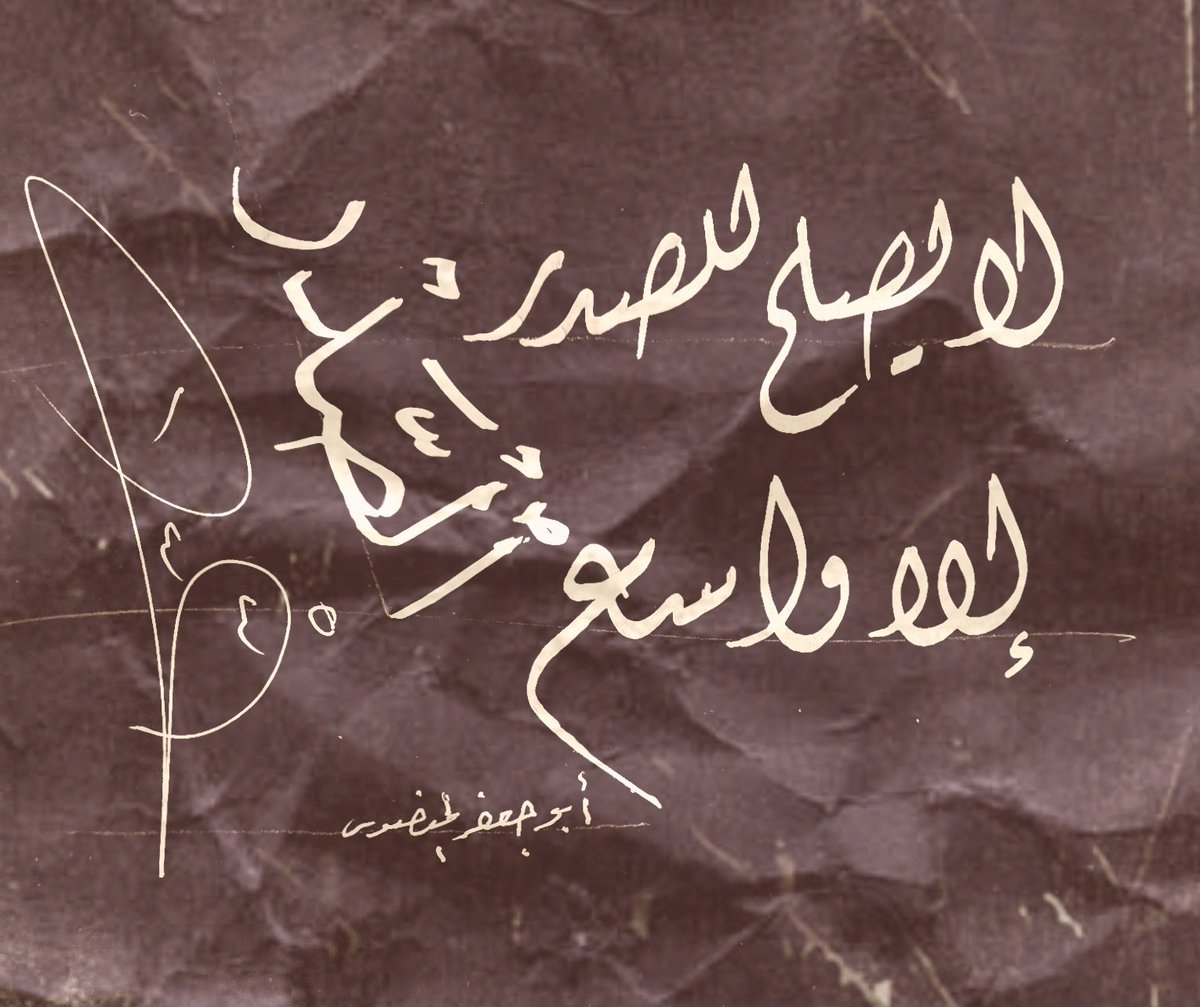 لا يصلح للصدر
إلا واسع
أبو جعفر المنصور